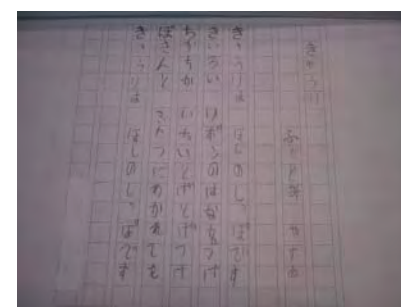 きゅうり
きゅうりは ほしのしっぽです
きいろい リボンのはなをつけ
ちくちく いたいとげとげつけ
ぽきんと ふたつにわかれても
きゅうりは ほしのしっぽです